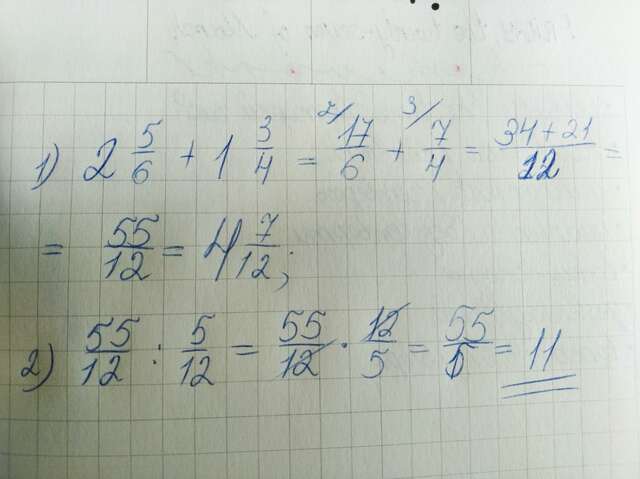 1) 2 5/6 + 1 3/4 = 2/ 17/6 + 3/ 7/4 = 34+21/12 =
= 55/12 = 4 7/12;
2) 55/12 : 5/12 = 55/12 · 12/5 = 55/5 = 11